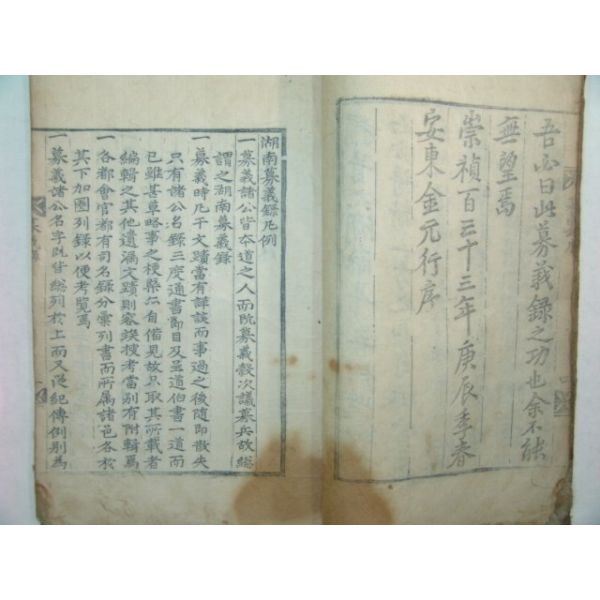 吾必曰此募義錄之功也余不能
無望焉
崇禎百三十三年庚辰季春
安東金元行序
湖南募義錄凡例
一募義諸公皆本道之人而旣募義穀次議募兵故總
謂之湖南募義錄
一募義時凡干文蹟當有詳該而事過之後隨即散失
只有諸公名錄三度通書節目及呈道伯書一道而
已雖甚草略事之梗槩亦自備見故只取其所載者
編輯之其他遺漏文蹟則容竢搜考當別有附輯焉
一各都會官都有司名錄分彙列書而所屬諸邑各於
其下加圈列錄以便考覽焉
一募義諸公名字旣皆總列於上而又從紀傳例別爲